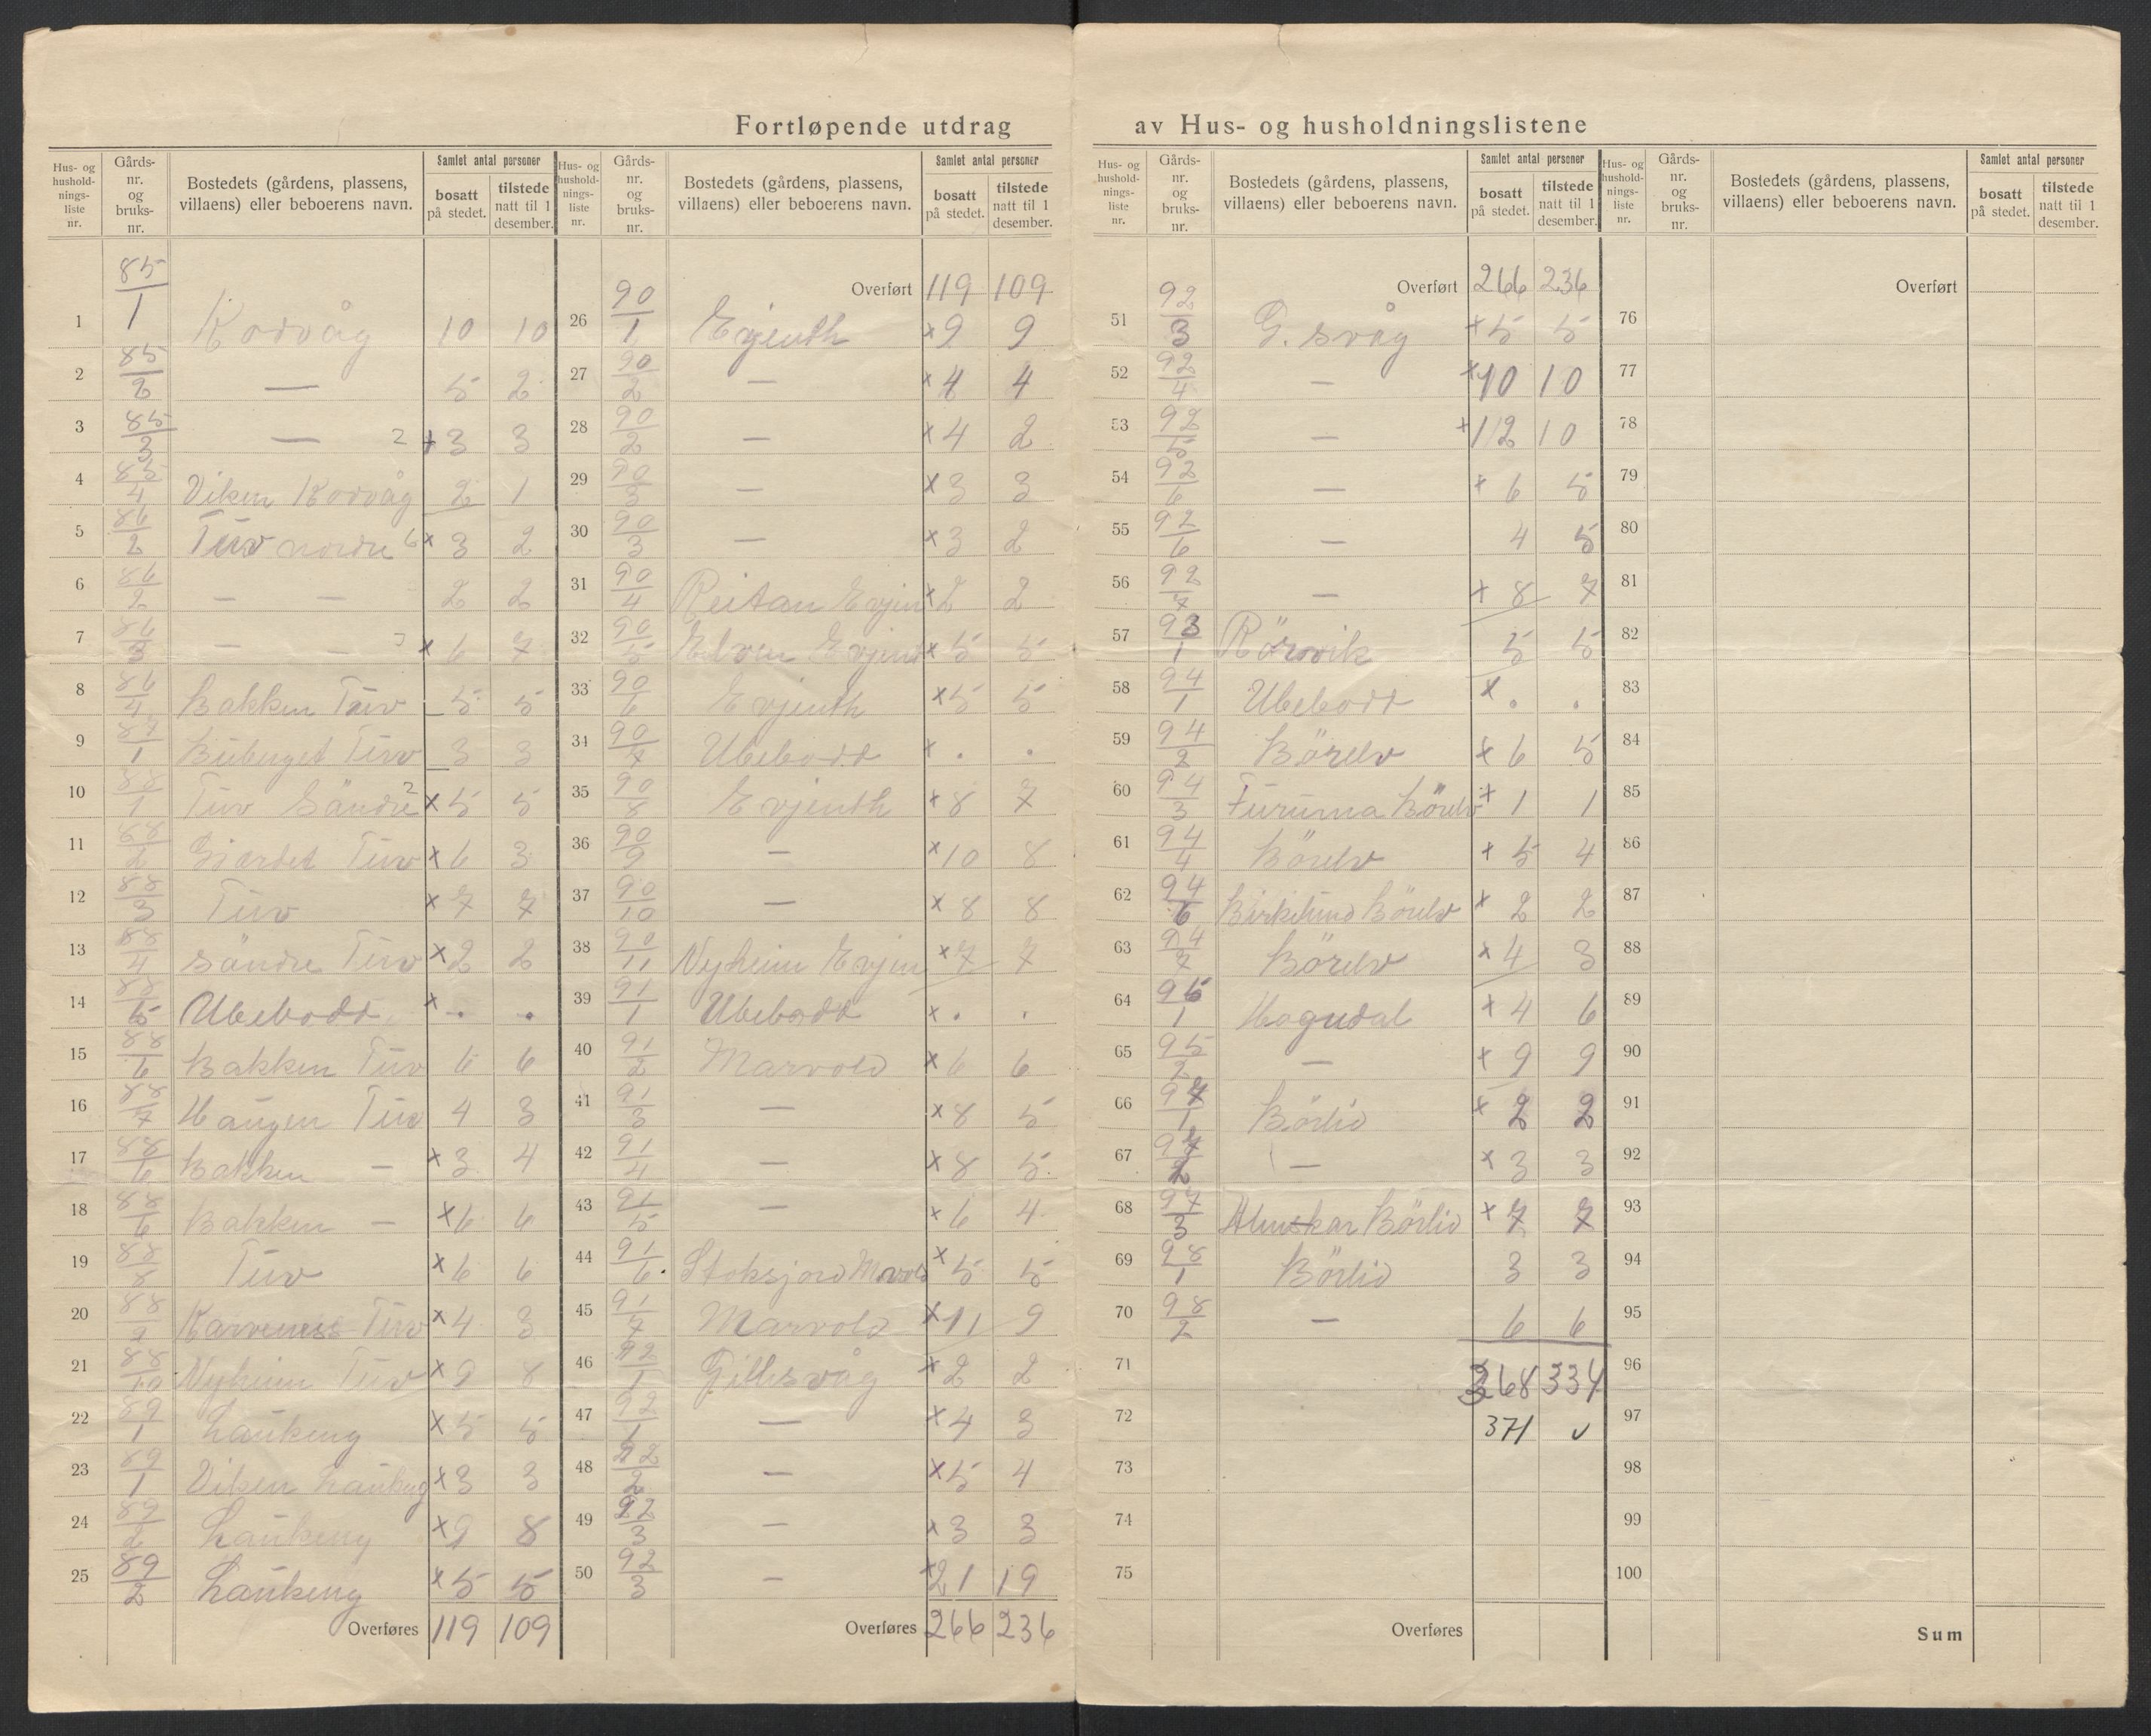 Fortløpende utdrag av Hus- og husholdningslistene
Hus- og husholdningsliste nr. | Gårds-nr. og bruks-nr. | Bostedets (gårdens, plassens, villaens) eller beboerens navn. | Samlet antal personer | bosatt på stedet. | tilstede natt til 1 desember.
1 85/1 Korvåg 10 10
2 85/2 — 5 2
3 85/3 — 2 x 3 3
4 85/4 Viken Korvåg 2 1
5 86/2 Tuv nordre 6 x 3 2
6 86/2 — — 2 2
7 86/3 — — x 6 7
8 86/4 Bakken Tuv 5 5
9 87/1 Tuv 3 3
10 88/1 Tuv Söndre 2 x 5 5
11 88/2 Gjærdet Tuv x 6 3
12 88/3 Tuv x 7 7
13 88/4 Söndre Tuv x 2 2
14 88/5 Ubebodd x . .
15 88/6 Bakken Tuv 6 6
16 88/7 Haugen Tuv 4 3
17 88/6 Bakken — x 3 4
18 88/6 Bakken — x 6 6
19 88/8 Tuv x 6 6
20 88/9 Karvenes Tuv x 4 3
21 88/10 Nyheim Tuv x 9 8
22 89/1 Laukeng x 5 5
23 89/1 Viken Laukeng x 3 3
24 89/2 Laukeng x 9 8
25 89/2 Laukeng x 5 5
Overføres 119 109
Hus- og husholdningsliste nr. | Gårds-nr. og bruks-nr. | Bostedets (gårdens, plassens, villaens) eller beboerens navn. | Samlet antal personer | bosatt på stedet. | tilstede natt til 1 desember.
Overført 119 109
26 90/1 Evjenth x 9 9
27 90/2 — x 4 4
28 90/2 — x 4 2
29 90/3 — x 3 3
30 90/3 — x 3 2
31 90/4 Reitan Evjen x 2 2
32 90/5 Elven Evjent x 5 5
33 90/6 Evjenth x 5 5
34 90/7 Ubebodd x . .
35 90/8 Evjenth x 8 7
36 90/9 — x 10 8
37 90/10 — x 8 8
38 90/11 Nyheim Evjen x 7 7
39 91/1 Ubebodd x . .
40 91/2 Marvold x 6 6
41 91/3 — x 8 5
42 91/4 — x 8 5
43 91/5 — x 6 4
44 91/6 Stoksjord Marvold x 5 5
45 91/7 Marvold x 11 9
46 92/1 Gillesvåg x 2 2
47 92/1 — x 4 3
48 92/2 — x 5 4
49 92/3 — x 3 3
50 92/3 — x 21 19
Overføres 266 236
Hus- og husholdningsliste nr. | Gårds-nr. og bruks-nr. | Bostedets (gårdens, plassens, villaens) eller beboerens navn. | Samlet antal personer | bosatt på stedet. | tilstede natt til 1 desember.
Overført 266 236
51 92/3 G. svåg x 5 5
52 92/4 — x 10 10
53 92/5 — x 12 10
54 92/6 — x 6 5
55 92/6 — 4 5
56 92/7 — x 8 7
57 93/1 Rörvik 5 5
58 94/1 Ubebodd x . .
59 94/2 Börelv x 6 5
60 94/3 Furumo Börelv x 1 1
61 94/4 Börelv x 5 4
62 94/6 Birkelund Börelv x 2 2
63 94/7 Börelv x 4 3
64 95/1 Hogndal x 4 6
65 95/2 — x 9 9
66 97/1 Börlid x 2 2
67 97/2 — x 3 3
68 97/3 Almskar Börlid x 7 7
69 98/1 Börlid 3 3
70 98/2 — 6 6
71 368 334
72 371 v
73
74
75
Overføres
Hus- og husholdningsliste nr. | Gårds-nr. og bruks-nr. | Bostedets (gårdens, plassens, villaens) eller beboerens navn. | Samlet antal personer | bosatt på stedet. | tilstede natt til 1 desember.
Overført
76
77
78
79
80
81
82
83
84
85
86
87
88
89
90
91
92
93
94
95
96
97
98
99
100
Sum